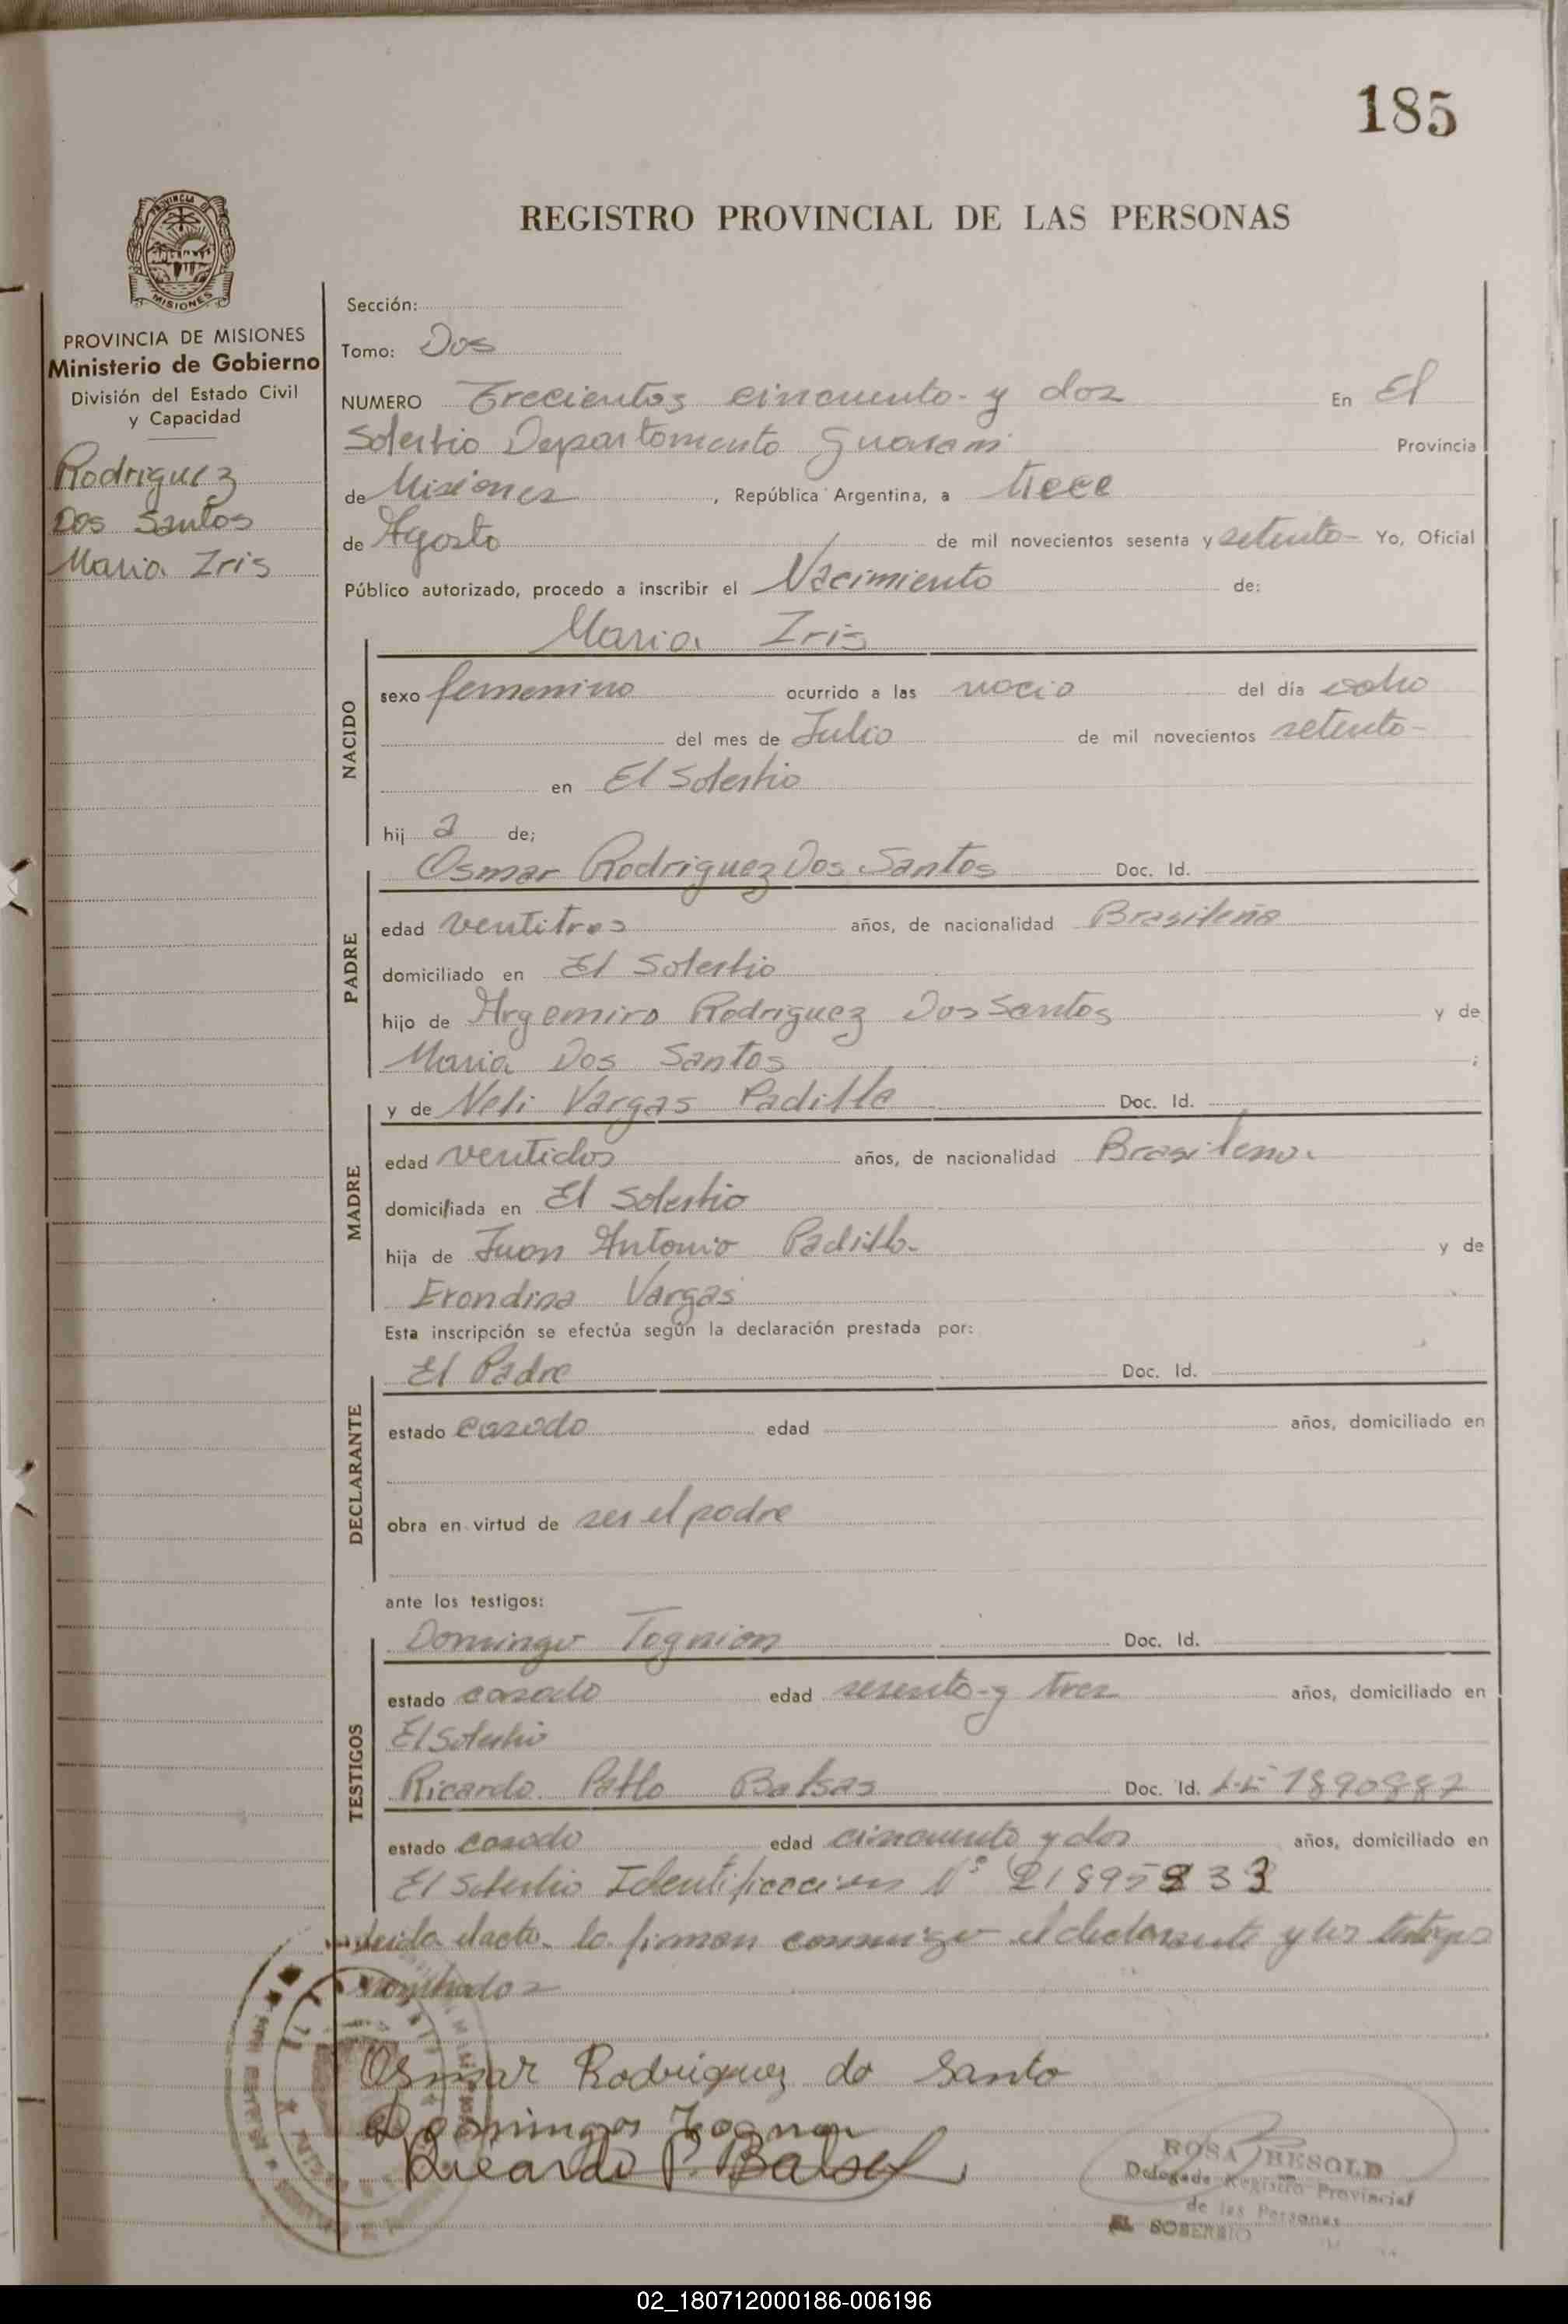 185
REGISTRO PROVINCIAL DE LAS PERSONAS
PROVINCIA DE MISIONES
Ministerio de Gobierno
División del Estado Civil
y Capacidad
Rodriguez
Dos Santos
Maria Iris
Sección:
Tomo: Dos
NUMERO Trecientos cincuenta y dos En El
Soberbio Departamento Guarani Provincia
de Misiones, República Argentina, a trece
de Agosto de mil novecientos sesenta y setenta- Yo, Oficial
Público autorizado, procedo a inscribir el Nacimiento de:
Maria Iris
NACIDO
sexo femenino ocurrido a las del día ocho
del mes de Julio de mil novecientos setenta-
en El Soberbio
hij a de;
Osmar Rodriguez Dos Santos Doc. Id.
PADRE
edad ventitres años, de nacionalidad Brasileña
domiciliado en El Soberbio
hijo de Argemiro Rodriguez Dos Santos y de
Maria Dos Santos ;
y de Neli Vargas Padilla Doc. Id.
MADRE
edad ventidos años, de nacionalidad Brasilena.
domiciliada en El Soberbio
hija de Juan Antonio Padilla y de
Erondina Vargas
Esta inscripción se efectúa según la declaración prestada por:
El Padre Doc. Id.
DECLARANTE
estado casado edad años, domiciliado en
obra en virtud de ser el padre
ante los testigos:
Domingo Tognion Doc. Id.
TESTIGOS
estado casado edad sesenta y tres años, domiciliado en
El Soberbio
Ricardo Pablo Balsas Doc. Id. L-E 7890887
estado casado edad cincuenta y dos años, domiciliado en
El Soberbio Identificacion Nº 21895833
leida el acta la firman conmigo el declarante y los testigos
nombrados
Osmar Rodriguez do Santo
Domingos Tognon
Ricardo P. Balsa
ROSA BESOLD
Delegada Registro Provincial
de las Personas
EL SOBERBIO
02_180712000186-006196